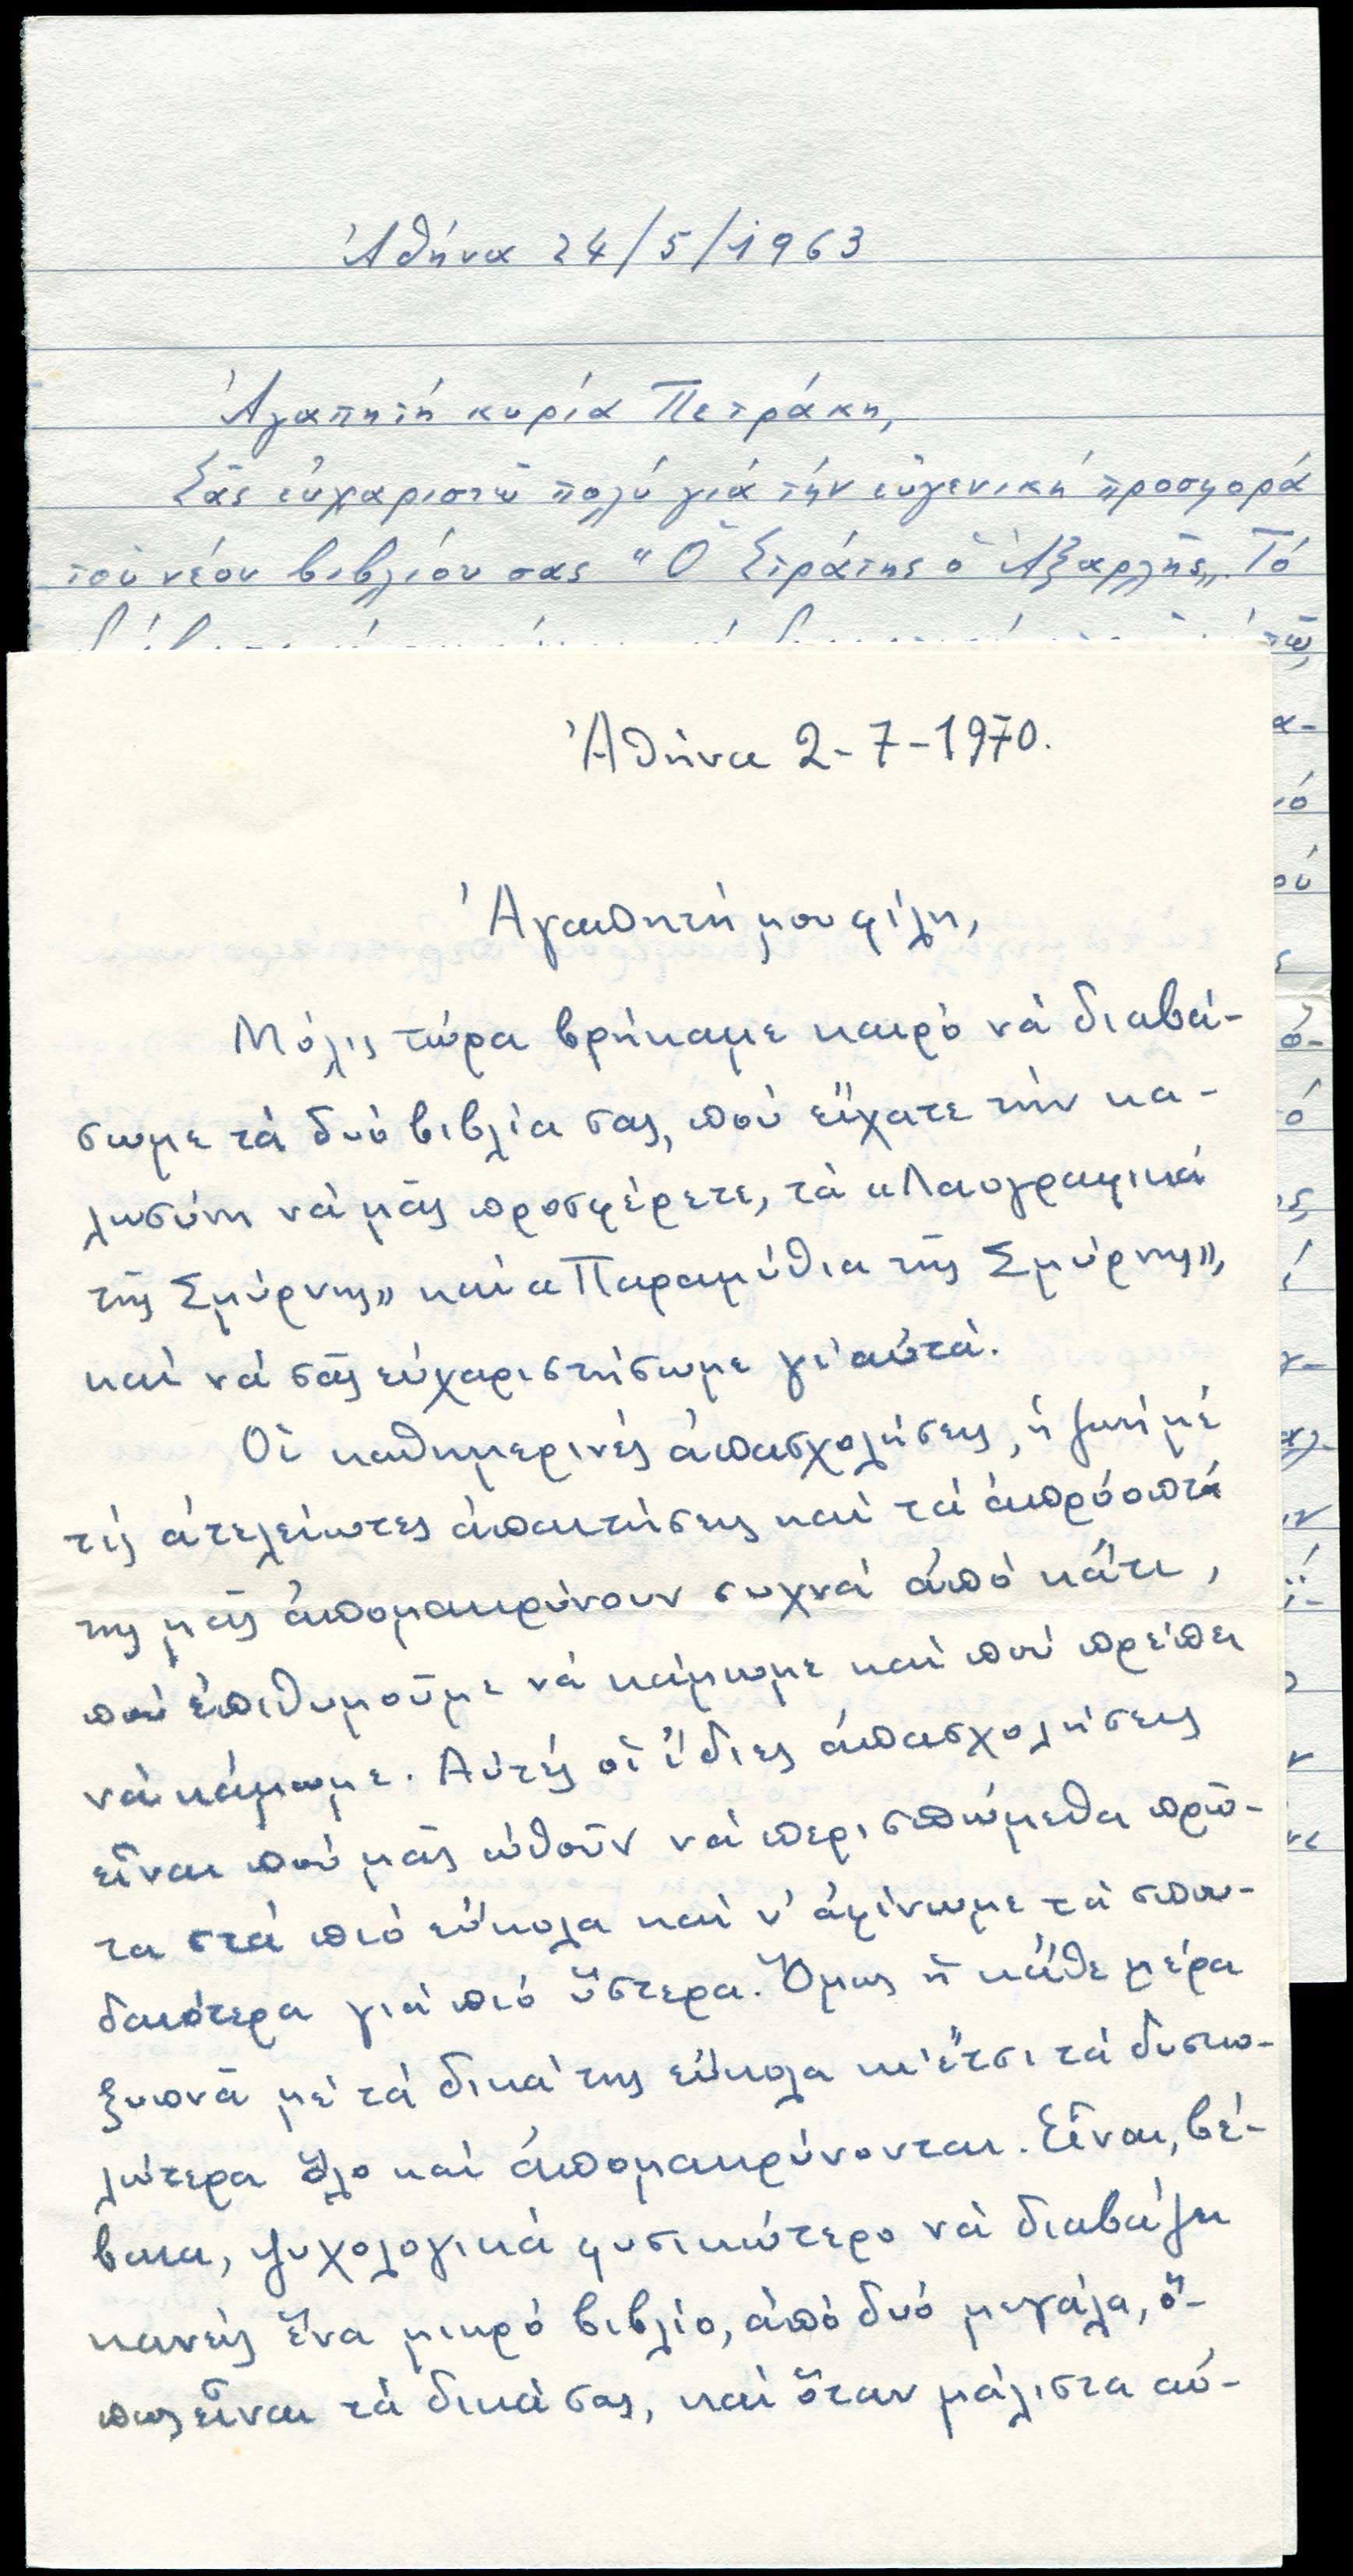 Ἀθήνα 24/5/1963
Ἀγαπητή κυρία Πετράκη,
Σᾶς εὐχαριστῶ πολύ γιά τήν εὐγενική προσφορά
τοῦ νέου βιβλίου σας "Ὁ Στράτης ὁ Ἀξαρλῆς". Τό
Ἀθήνα 2-7-1970.
Ἀγαπητή μου φίλη,
Μόλις τώρα βρήκαμε καιρό νά διαβά-
σωμε τά δυό βιβλία σας, πού εἴχατε τήν κα-
λωσύνη νά μᾶς προσφέρετε, τά «Λαογραφικά
τῆς Σμύρνης» καί «Παραμύθια τῆς Σμύρνης»,
καί νά σᾶς εὐχαριστήσωμε γι' αὐτά.
Οἱ καθημερινές ἀπασχολήσεις, ἡ ζωή μέ
τίς ἀτελείωτες ἀπαιτήσεις καί τά ἀπρόοπτά
της μᾶς ἀπομακρύνουν συχνά ἀπό κάτι,
πού ἐπιθυμοῦμε νά κάμωμε καί πού πρέπει
νά κάμωμε. Αὐτές οἱ ἴδιες ἀπασχολήσεις
εἶναι πού μᾶς ὠθοῦν νά περισπώμεθα πρῶ-
τα στά πιό εὔκολα καί ν' ἀφίνωμε τά σπου-
δαιότερα γιά πιό ὕστερα. Ὅμως ἡ κάθε μέρα
ξυπνᾶ μέ τά δικά της εὔκολα κι' ἔτσι τά δυσκο-
λώτερα ὅλο καί ἀπομακρύνονται. Εἶναι, βέ-
βαια, ψυχολογικά φυσικώτερο νά διαβάζει
κανείς ἕνα μικρό βιβλίο, ἀπό δυό μεγάλα, ὅ-
πως εἶναι τά δικά σας, καί ὅταν μάλιστα αὐ-